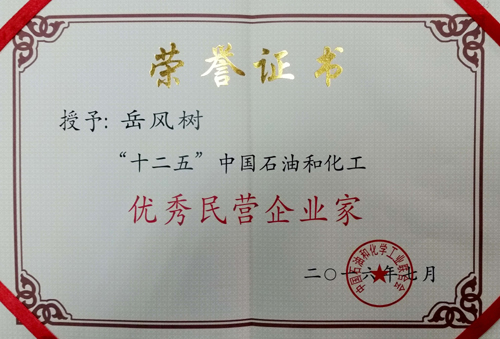 荣誉证书
授予: 岳风树
“十二五”中国石油和化工
优秀民营企业家
二〇一六年七月
中国石油和化学工业联合会